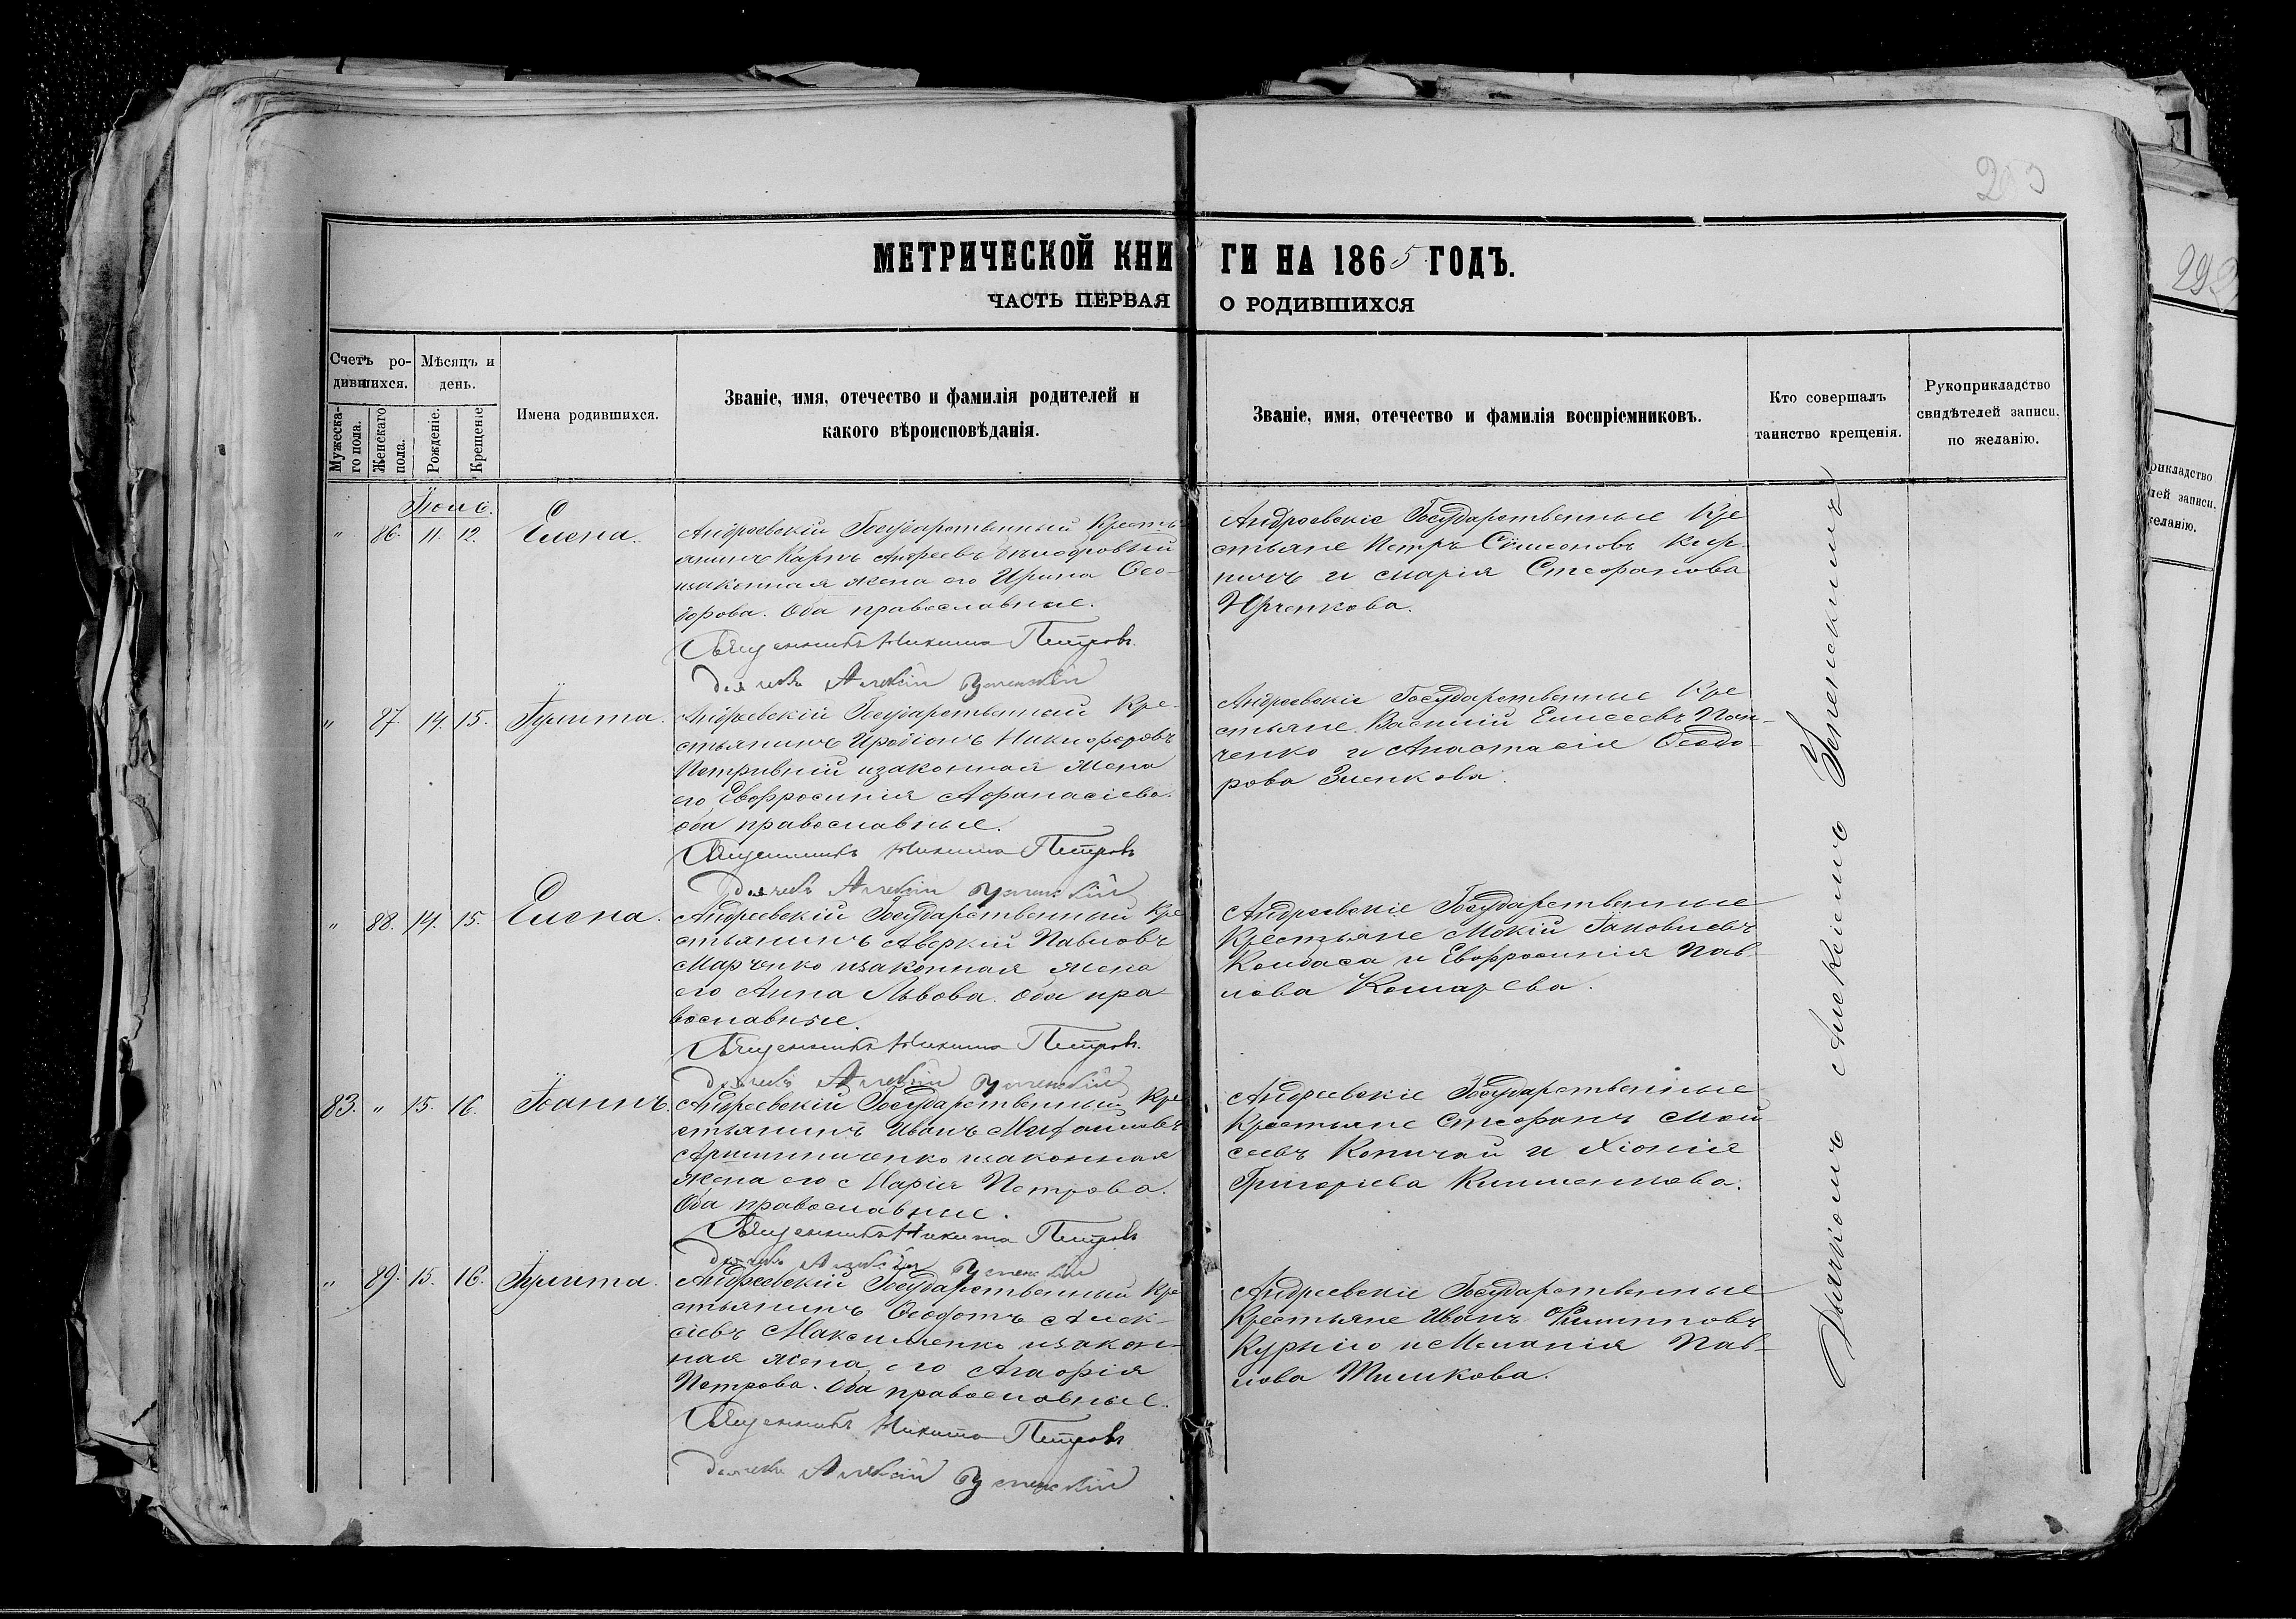 203
МЕТРИЧЕСКОЙ КНИГИ НА 1865 ГОДЪ.
ЧАСТЬ ПЕРВАЯ О РОДИВШИХСЯ
Счетъ ро-
дившихся.
Мужеска-
го пола.
Женскаго
пола.
Мѣсяцъ и
день.
Рожденіе.
Крещеніе
Имена родившихся.
Званіе, имя, отечество и фамилія родителей и
какого вѣроисповѣданія.
Званіе, имя, отечество и фамилія воспріемниковъ.
Кто совершалъ
таинство крещенія.
Рукоприкладство
свидѣтелей записи,
по желанію.
" 86. 11. 12. Елена.
Андреевскій Государственный Кресть-
янинъ Карпъ Андреевъ
изаконная жена его Ирина Ѳео-
дорова. Оба православные.
Священникъ Никита Петровъ
дьячекъ Алексій Успенскій
Андреевскіе Государственные Кре
стьяне Петръ Сѵмеоновъ Кир
пичъ и Марія Стефанова
Юрченкова.
" 87. 14. 15. Іулитта.
Андреевскій Государственный Кре-
стьянинъ Иродіонъ Никифоровъ
Петривній изаконная жена
его Евфросинія Афанасіева.
оба православные.
Священникъ Никита Петровъ
дьячекъ Алексій Успенскій
Андреевскіе Государственные Кре
стьяне Василій Елисеевъ
ченко и Анастасія Ѳеодо-
рова Зленкова.
" 88. 14. 15. Елена.
Андреевскій Государственный Кре
стьянинъ Аверкій Павловъ
Марченко изаконная жена
его Анна Львова. Оба пра-
вославные.
Священникъ Никита Петровъ
дьячекъ Алексій Успенскій
Андреевскіе Государственные
Крестьяне Мокій Іаковлевъ
Колбаса и Евфросинія Пав-
лова Комарева.
83. " 15. 16. Іоаннъ.
Андреевскій Государственный Кре
стьянинъ Иванъ Михайловъ
изаконная
жена его Марія Петрова.
Оба православные.
Священникъ Никита Петровъ
дьячекъ Алексій Успенскій
Андреевскіе Государственные
Крестьяне Стефанъ Мои
сеевъ и Хіонія
Григоріева Клименкова.
" 89. 15. 16. Іулитта.
Андреевскій Государственный Кре
стьянинъ Ѳеодотъ Алек-
сіевъ Максименко изакон-
ная жена его Агафія
Петрова. Оба православные.
Священникъ Никита Петровъ
дьячекъ Алексій Успенскій
Андреевскіе Государственные
Крестьяне Иванъ Филипповъ
Курыло и Меланія Пав-
лова Тимкова.
292
рикладство
лей записи,
желанію.